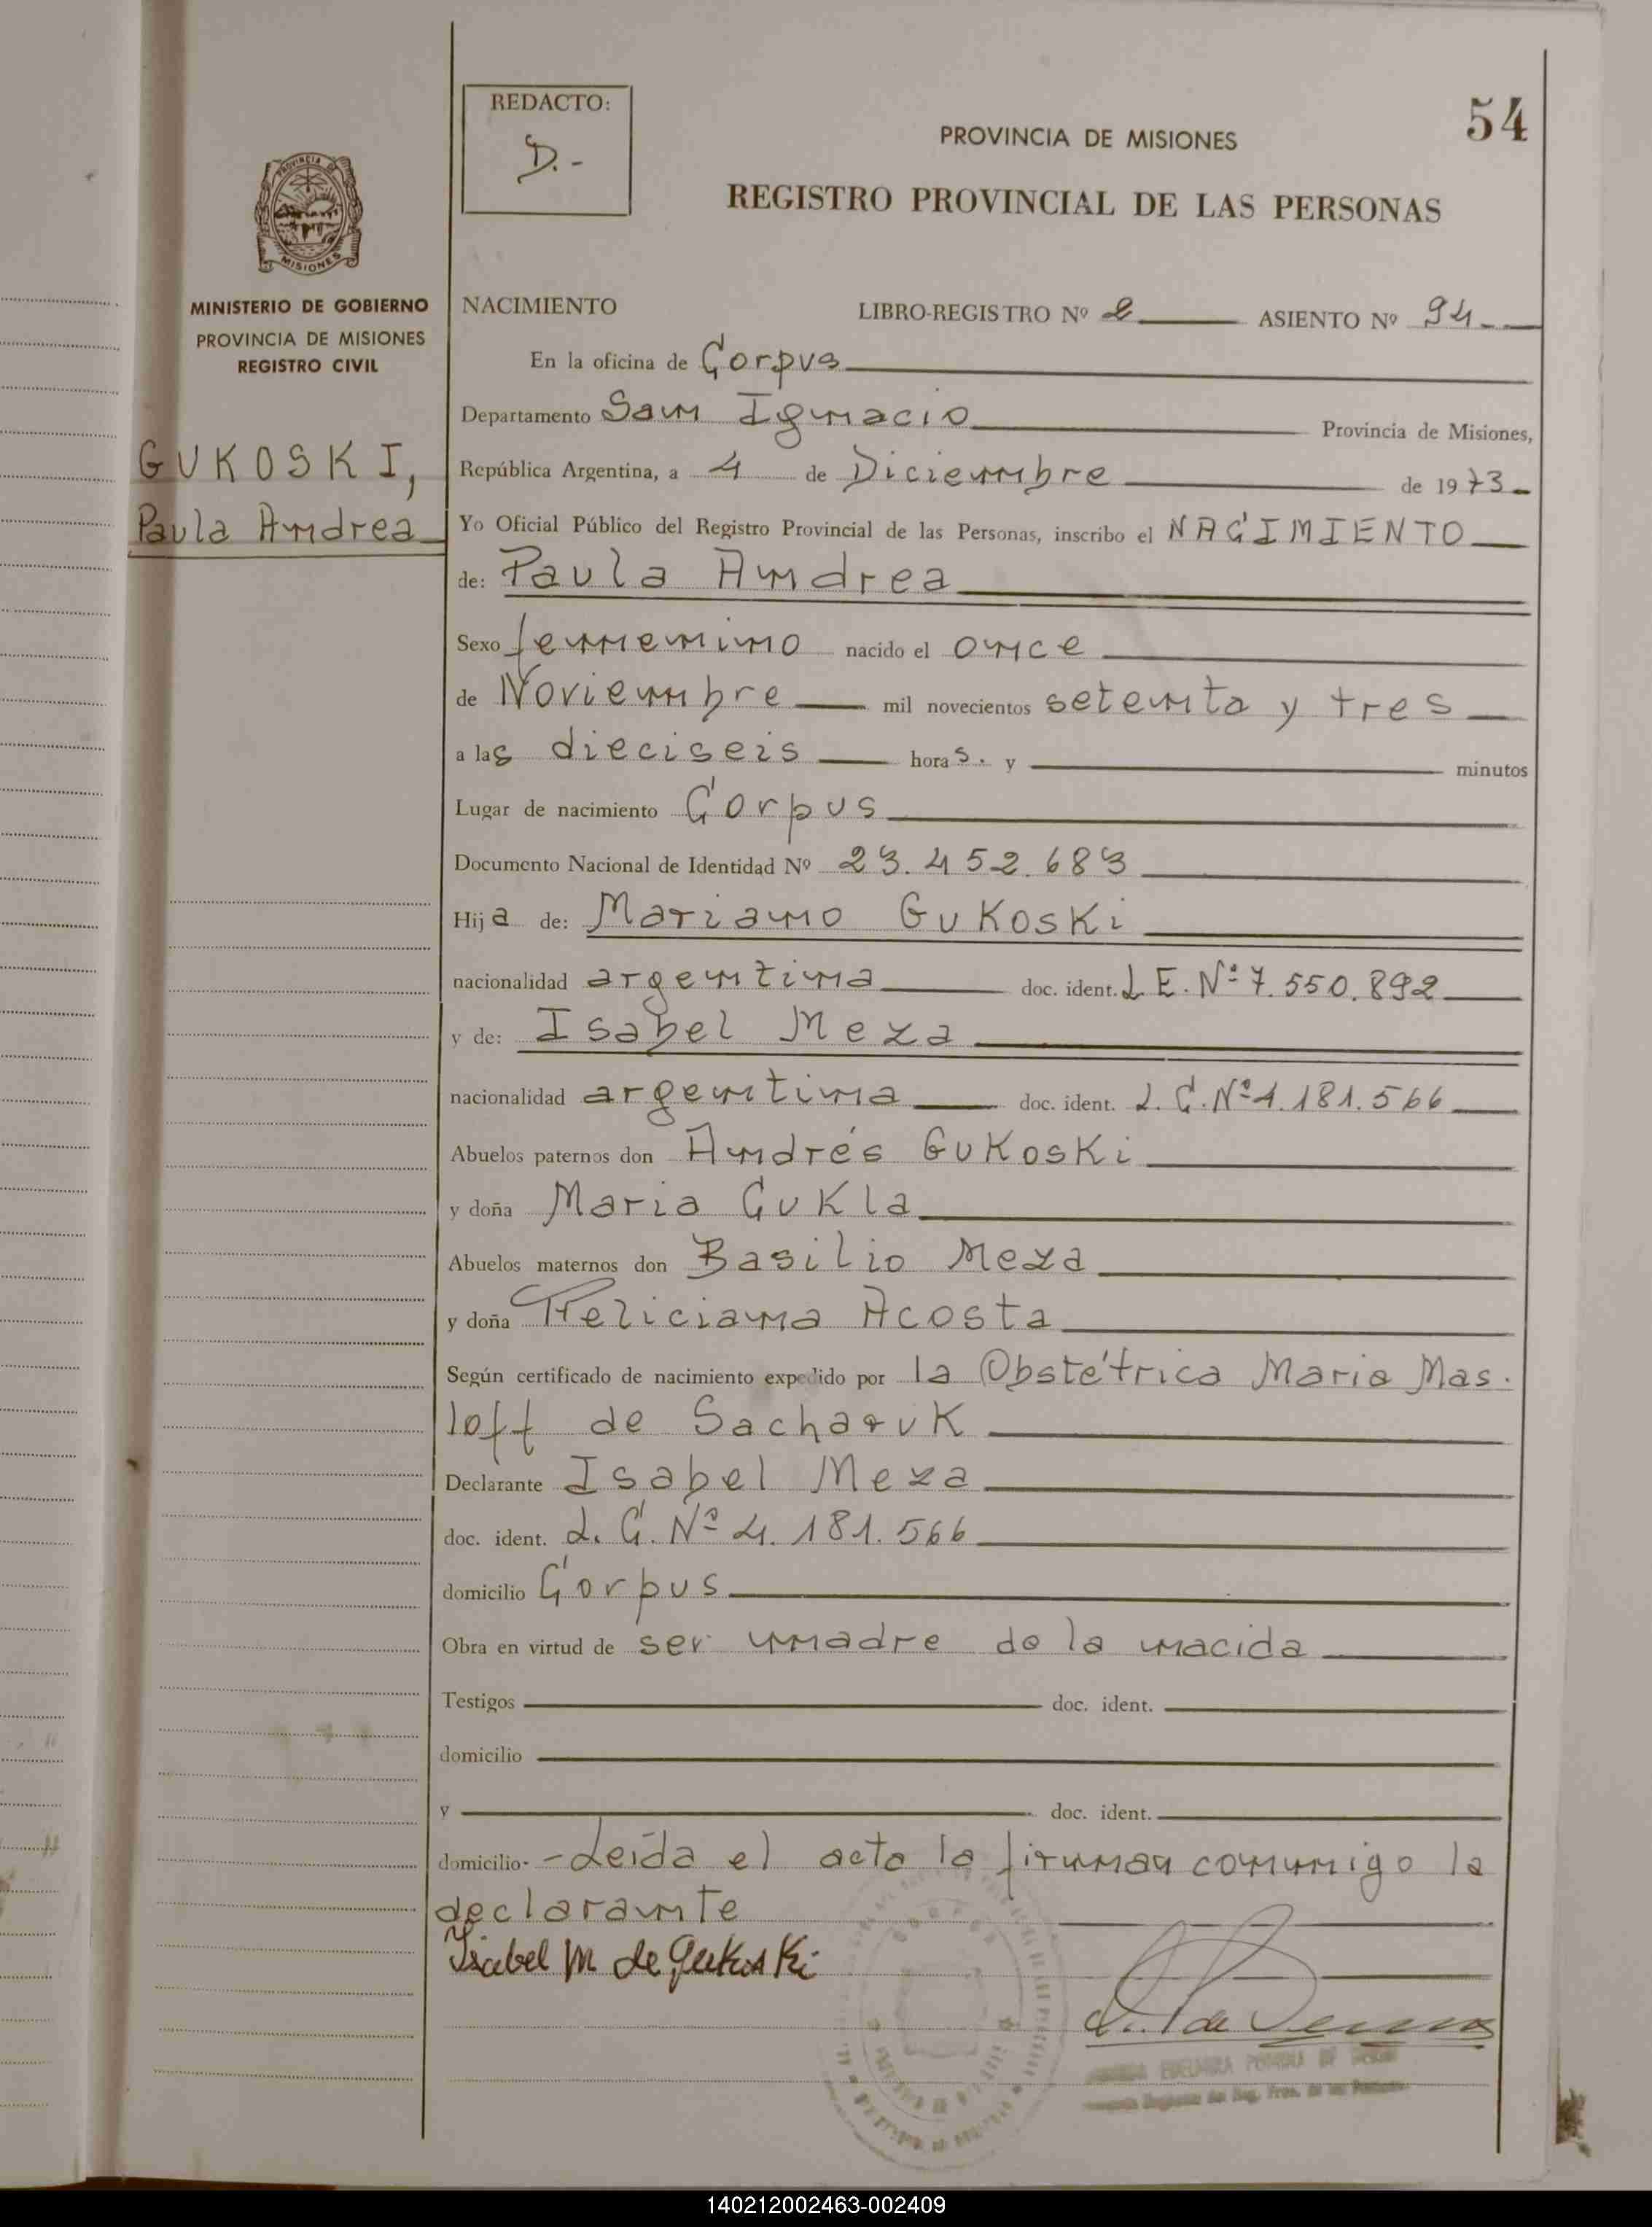 REDACTO:
D.-
54
PROVINCIA DE MISIONES
REGISTRO PROVINCIAL DE LAS PERSONAS
PROVINCIA DE
MISIONES
MINISTERIO DE GOBIERNO
PROVINCIA DE MISIONES
REGISTRO CIVIL
GUKOSKI,
Paula Andrea
NACIMIENTO LIBRO-REGISTRO Nº 2 ASIENTO Nº 94
En la oficina de Corpus
Departamento San Ignacio Provincia de Misiones,
República Argentina, a 4 de Diciembre de 1973
Yo Oficial Público del Registro Provincial de las Personas, inscribo el NACIMIENTO
de: Paula Andrea
Sexo femenino nacido el once
de Noviembre mil novecientos setenta y tres
a las dieciseis horas. y minutos
Lugar de nacimiento Corpus
Documento Nacional de Identidad Nº 23.452.683
Hija de: Mariano Gukoski
nacionalidad argentina doc. ident. L.E. Nº 7.550.892
y de: Isabel Meza
nacionalidad argentina doc. ident. L.C. Nº 4.181.566
Abuelos paternos don Andrés Gukoski
y doña Maria Gukla
Abuelos maternos don Basilio Meza
y doña Feliciana Acosta
Según certificado de nacimiento expedido por la Obstétrica Maria Mas.
loff de Sacharuk
Declarante Isabel Meza
doc. ident. L.C. Nº 4.181.566
domicilio Corpus
Obra en virtud de ser madre de la nacida
Testigos doc. ident.
domicilio
y doc. ident.
domicilio- -Leída el acta la firman conmigo la
declarante
Isabel M de Gukoski
140212002463-002409